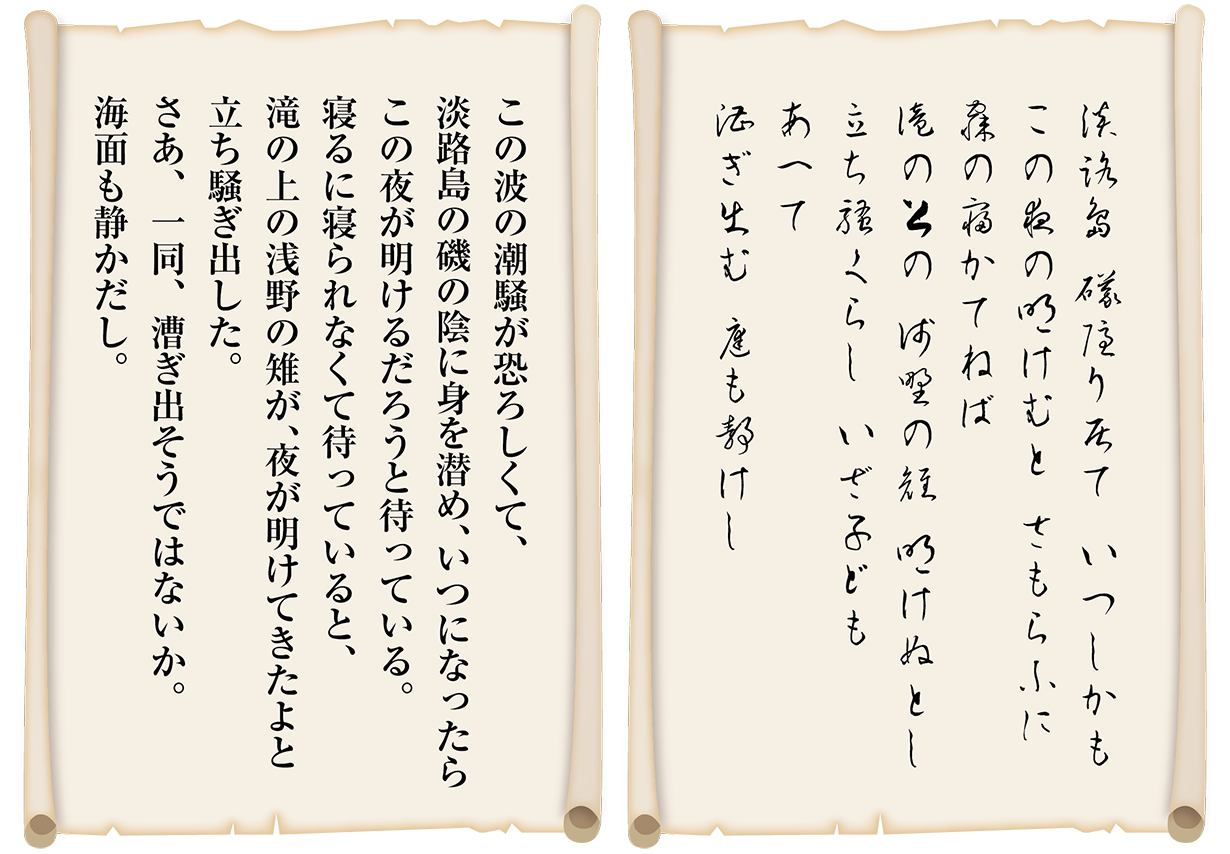 淡路島 礒隠り居て いつしかも
この夜の明けむと さもらふに
の寝かてねば
滝の上の 浅野の雉 明けぬとし
立ち騒くらし いざ子ども
あへて
漕ぎ出む 庭も静けし
この波の潮騒が恐ろしくて、
淡路島の磯の陰に身を潜め、いつになったら
この夜が明けるだろうと待っている。
寝るに寝られなくて待っていると、
滝の上の浅野の雉が、夜が明けてきたよと
立ち騒ぎ出した。
さあ、一同、漕ぎ出そうではないか。
海面も静かだし。